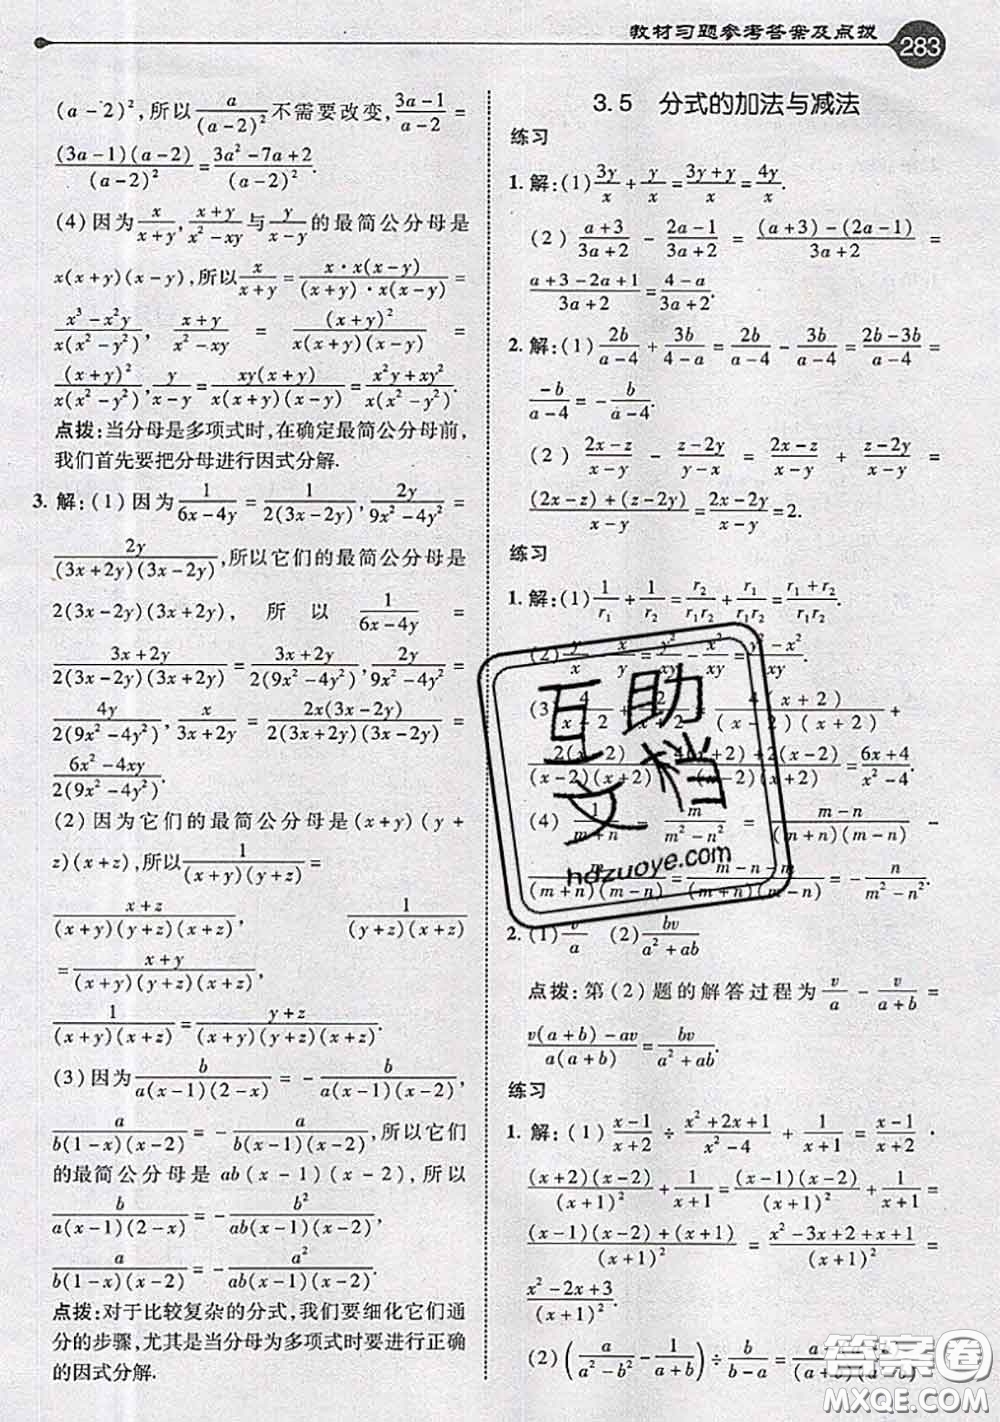 教材习题参考答案及点拨 283
(a-2)²,所以 a/(a-2)² 不需要改变, (3a-1)/(a-2) =
(3a-1)(a-2)/(a-2)² = (3a²-7a+2)/(a-2)².
(4) 因为 x/(x+y), (x+y)/(x²-xy) 与 y/(x-y) 的最简公分母是
x(x+y)(x-y),所以 x/(x+y) = x·x(x-y)/((x+y)·x(x-y)) =
(x³-x²y)/(x(x²-y²)), (x+y)/(x²-xy) = (x+y)²/(x(x+y)(x-y)) =
(x+y)²/(x(x²-y²)), y/(x-y) = xy(x+y)/(x(x+y)(x-y)) = (x²y+xy²)/(x(x²-y²)).
点拨:当分母是多项式时,在确定最简公分母前,
我们首先要把分母进行因式分解.
3. 解:(1) 因为 1/(6x-4y) = 1/(2(3x-2y)), 2y/(9x²-4y²) =
2y/((3x+2y)(3x-2y)),所以它们的最简公分母是
2(3x-2y)(3x+2y),所以 1/(6x-4y) =
(3x+2y)/(2(3x-2y)(3x+2y)) = (3x+2y)/(2(9x²-4y²)), 2y/(9x²-4y²) =
4y/(2(9x²-4y²)), x/(3x+2y) = 2x(3x-2y)/(2(3x-2y)(3x+2y)) =
(6x²-4xy)/(2(9x²-4y²)).
(2) 因为它们的最简公分母是(x+y)(y+
z)(x+z),所以 1/((x+y)(y+z)) =
(x+z)/((x+y)(y+z)(x+z)), 1/((y+z)(x+z))
= (x+y)/((x+y)(y+z)(x+z)),
1/((x+y)(x+z)) = (y+z)/((x+y)(y+z)(x+z)).
(3) 因为 b/(a(x-1)(2-x)) = -b/(a(x-1)(x-2)),
a/(b(1-x)(x-2)) = -a/(b(x-1)(x-2)),所以它们
的最简公分母是 ab(x-1)(x-2),所以
b/(a(x-1)(2-x)) = -b²/(ab(x-1)(x-2)),
a/(b(1-x)(x-2)) = -a²/(ab(x-1)(x-2)).
点拨:对于比较复杂的分式,我们要细化它们通
分的步骤,尤其是当分母为多项式时要进行正确
的因式分解.
3.5 分式的加法与减法
练习
1. 解:(1) 3y/x + y/x = (3y+y)/x = 4y/x.
(2) (a+3)/(3a+2) - (2a-1)/(3a+2) = ((a+3)-(2a-1))/(3a+2) =
(a+3-2a+1)/(3a+2) = (4-a)/(3a+2).
2. 解:(1) 2b/(a-4) + 3b/(4-a) = 2b/(a-4) - 3b/(a-4) = (2b-3b)/(a-4) =
-b/(a-4) = -b/(a-4).
(2) (2x-z)/(x-y) - (z-2y)/(y-x) = (2x-z)/(x-y) + (z-2y)/(x-y) =
((2x-z)+(z-2y))/(x-y) = (2x-2y)/(x-y) = 2.
练习
1. 解:(1) 1/r₁ + 1/r₂ = r₂/(r₁r₂) + r₁/(r₁r₂) = (r₁+r₂)/(r₁r₂).
(2) y/x - x/y = y²/xy - x²/xy = (y²-x²)/xy.
(3) 4/(x-2) + 2/(x+2) = 4(x+2)/((x-2)(x+2)) +
2(x-2)/((x-2)(x+2)) = (4(x+2)+2(x-2))/((x-2)(x+2)) = (6x+4)/(x²-4).
(4) 1/(m+n) - m/(m²-n²) = (m-n)/((m+n)(m-n)) -
m/((m+n)(m-n)) = (m-n-m)/((m+n)(m-n)) = -n/(m²-n²).
2. (1) v/a (2) bv/(a²+ab)
点拨:第(2)题的解答过程为 v/a - v/(a+b) =
(v(a+b)-av)/(a(a+b)) = bv/(a²+ab).
练习
1. 解:(1) (x-1)/(x+2) ÷ (x²+2x+1)/(x²-4) + 1/(x+1) = (x-1)/(x+2) ·
(x+2)(x-2)/(x+1)² + 1/(x+1) = (x-1)(x-2)/(x+1)² + 1/(x+1) =
((x-1)(x-2)+(x+1))/(x+1)² = (x²-3x+2+x+1)/(x+1)² =
(x²-2x+3)/(x+1)².
(2) (a/(a²-b²) - 1/(a+b)) ÷ b/(b-a) =
互助文档
hdzuoye.com
答案圈
MXQE.COM